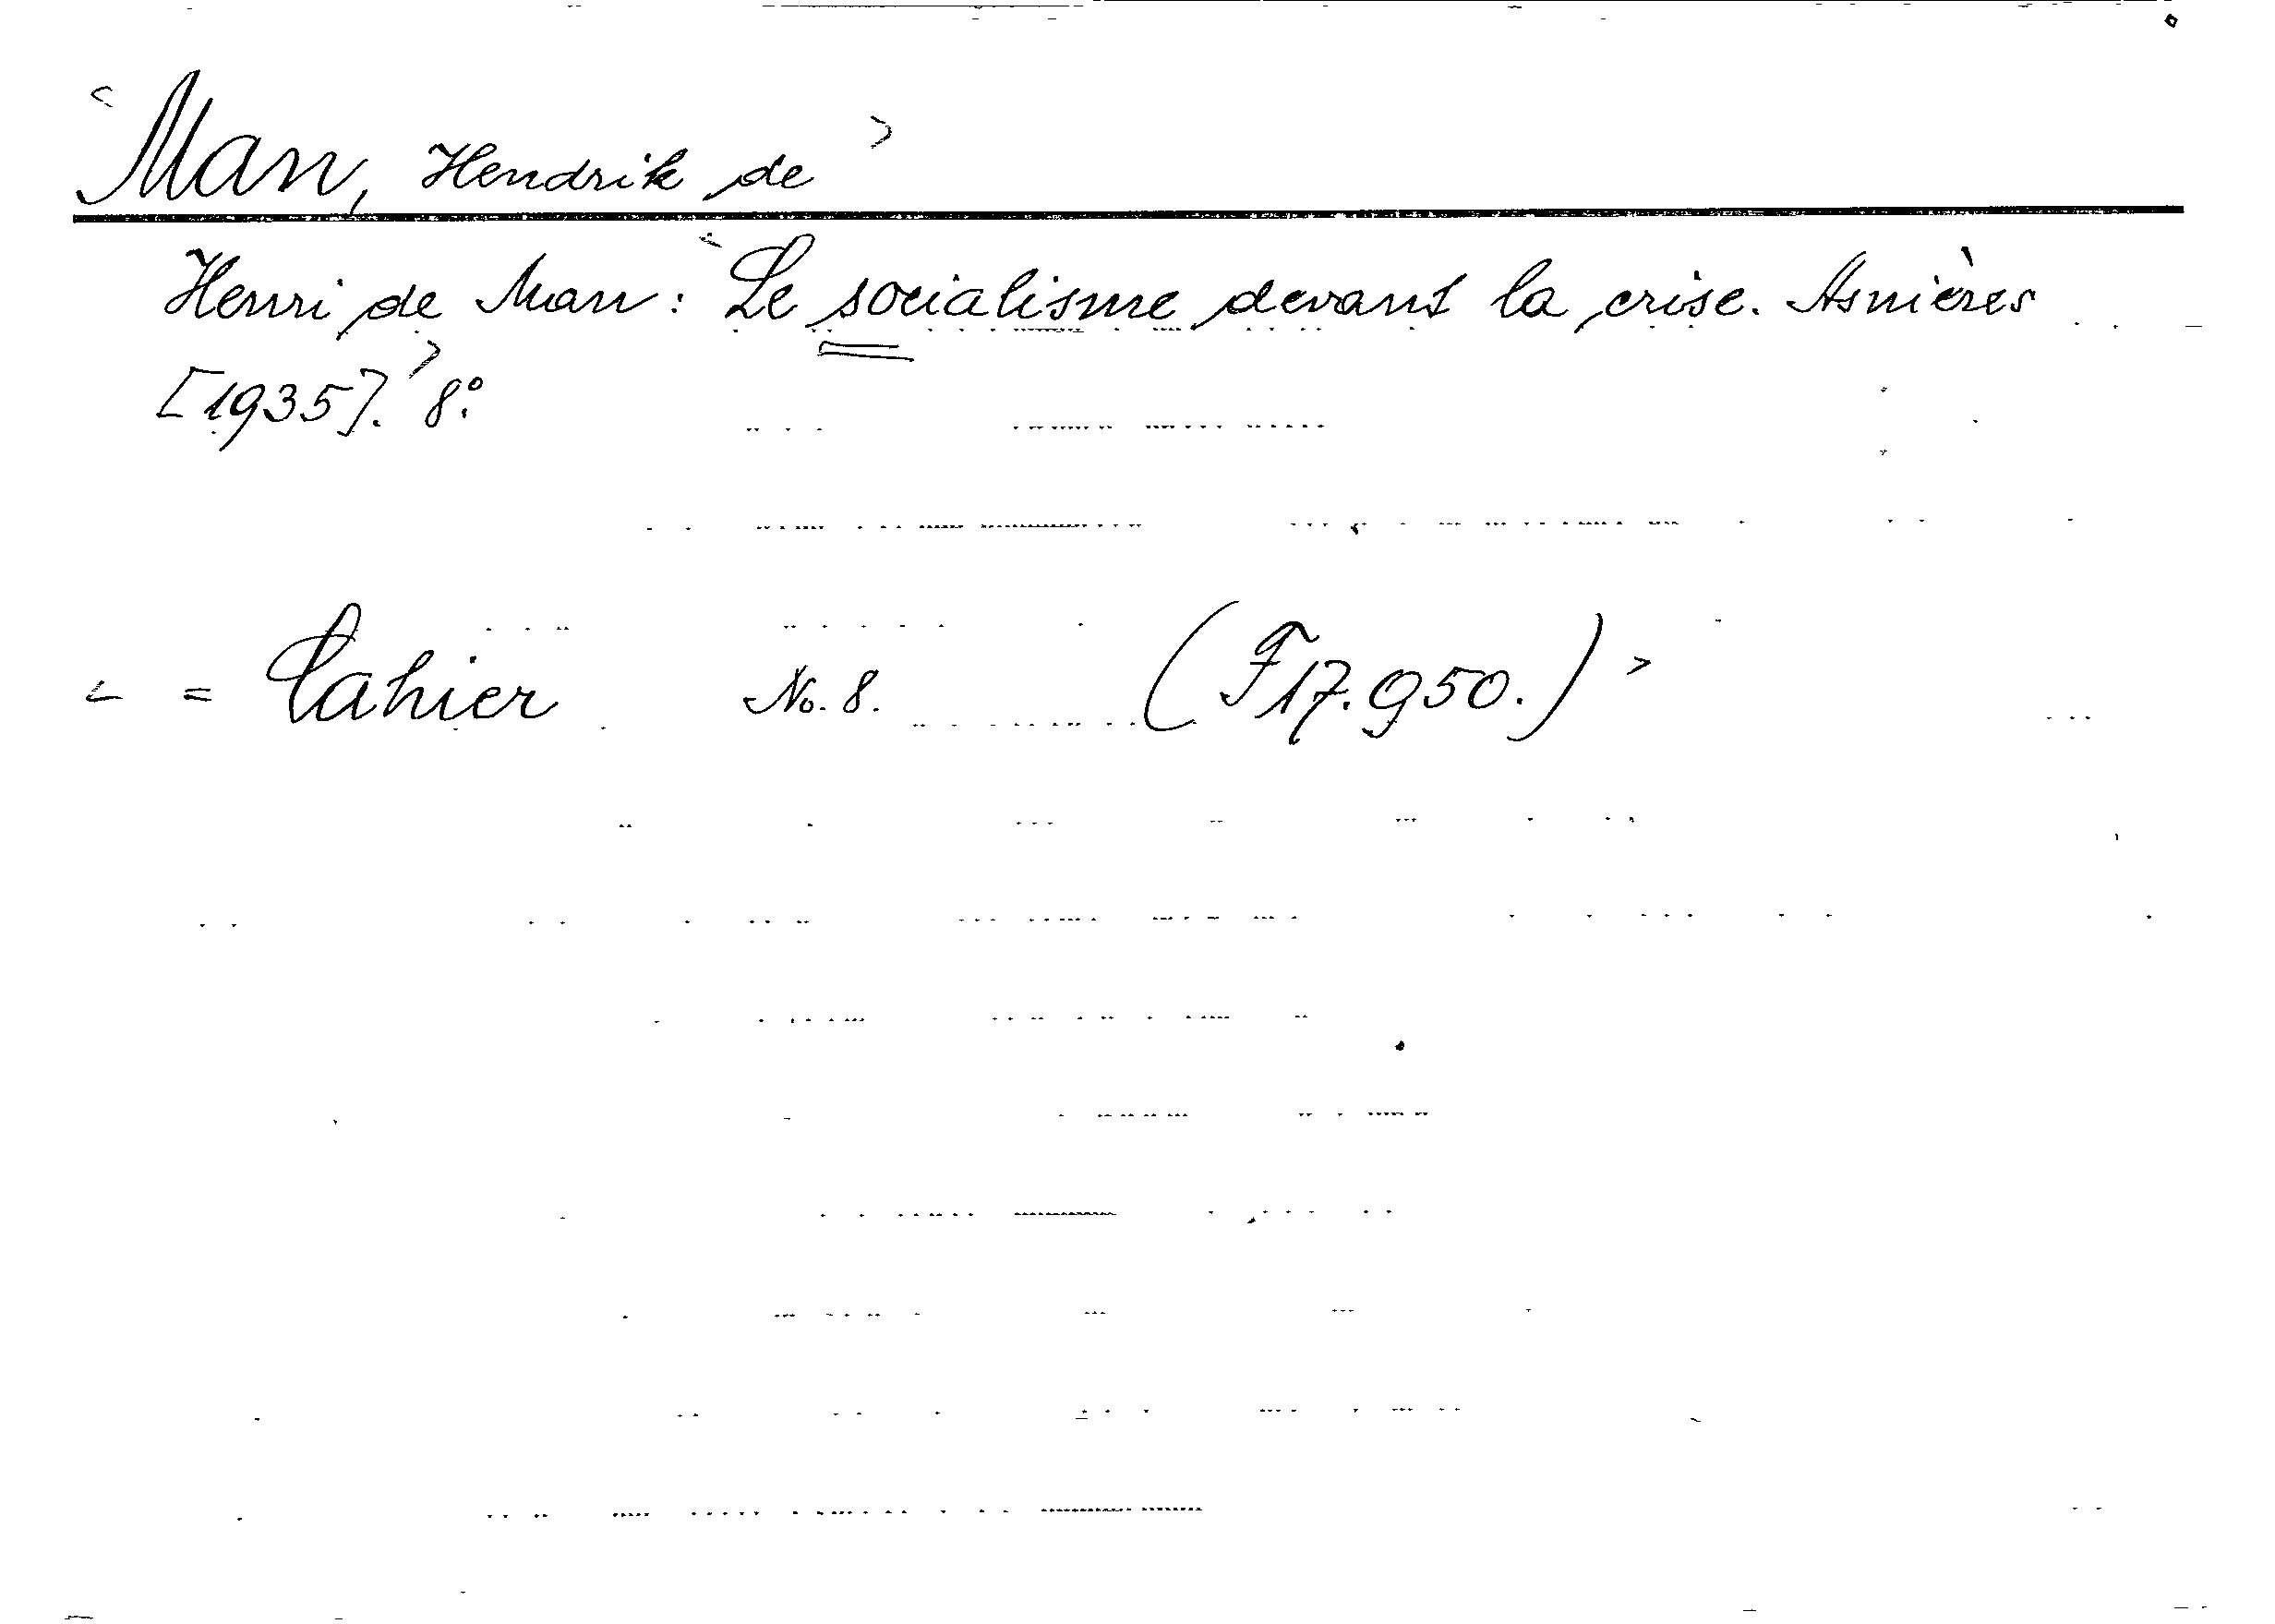 <Man, Hendrik de>
Henri de Man: <Le socialisme devant la crise. Asnières
[1935].> 8°.
< = Cahier No. 8. (F17.950.)>